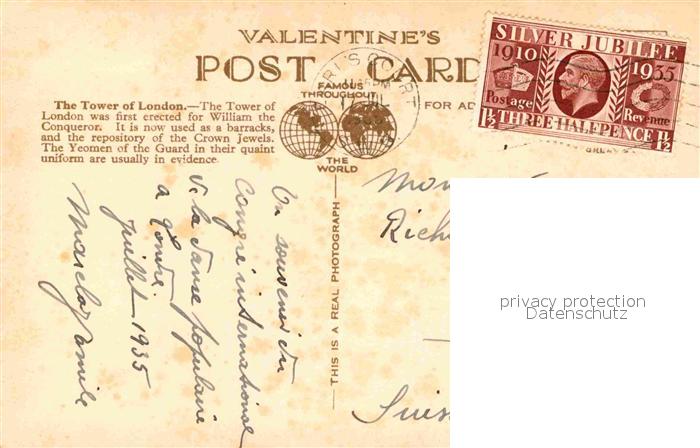 VALENTINE'S
POST CARD
FAMOUS
THROUGHOUT
THE
WORLD
FOR AD
The Tower of London.—The Tower of
London was first erected for William the
Conqueror. It is now used as a barracks,
and the repository of the Crown Jewels.
The Yeomen of the Guard in their quaint
uniform are usually in evidence.
SILVER JUBILEE
1910 1935
Postage Revenue
1½ THREE HALFPENCE 1½
THIS IS A REAL PHOTOGRAPH
En souvenir du
Congre international
de la danse populaire
a Londre.
juillet 1935
Suis
privacy protection
Datenschutz